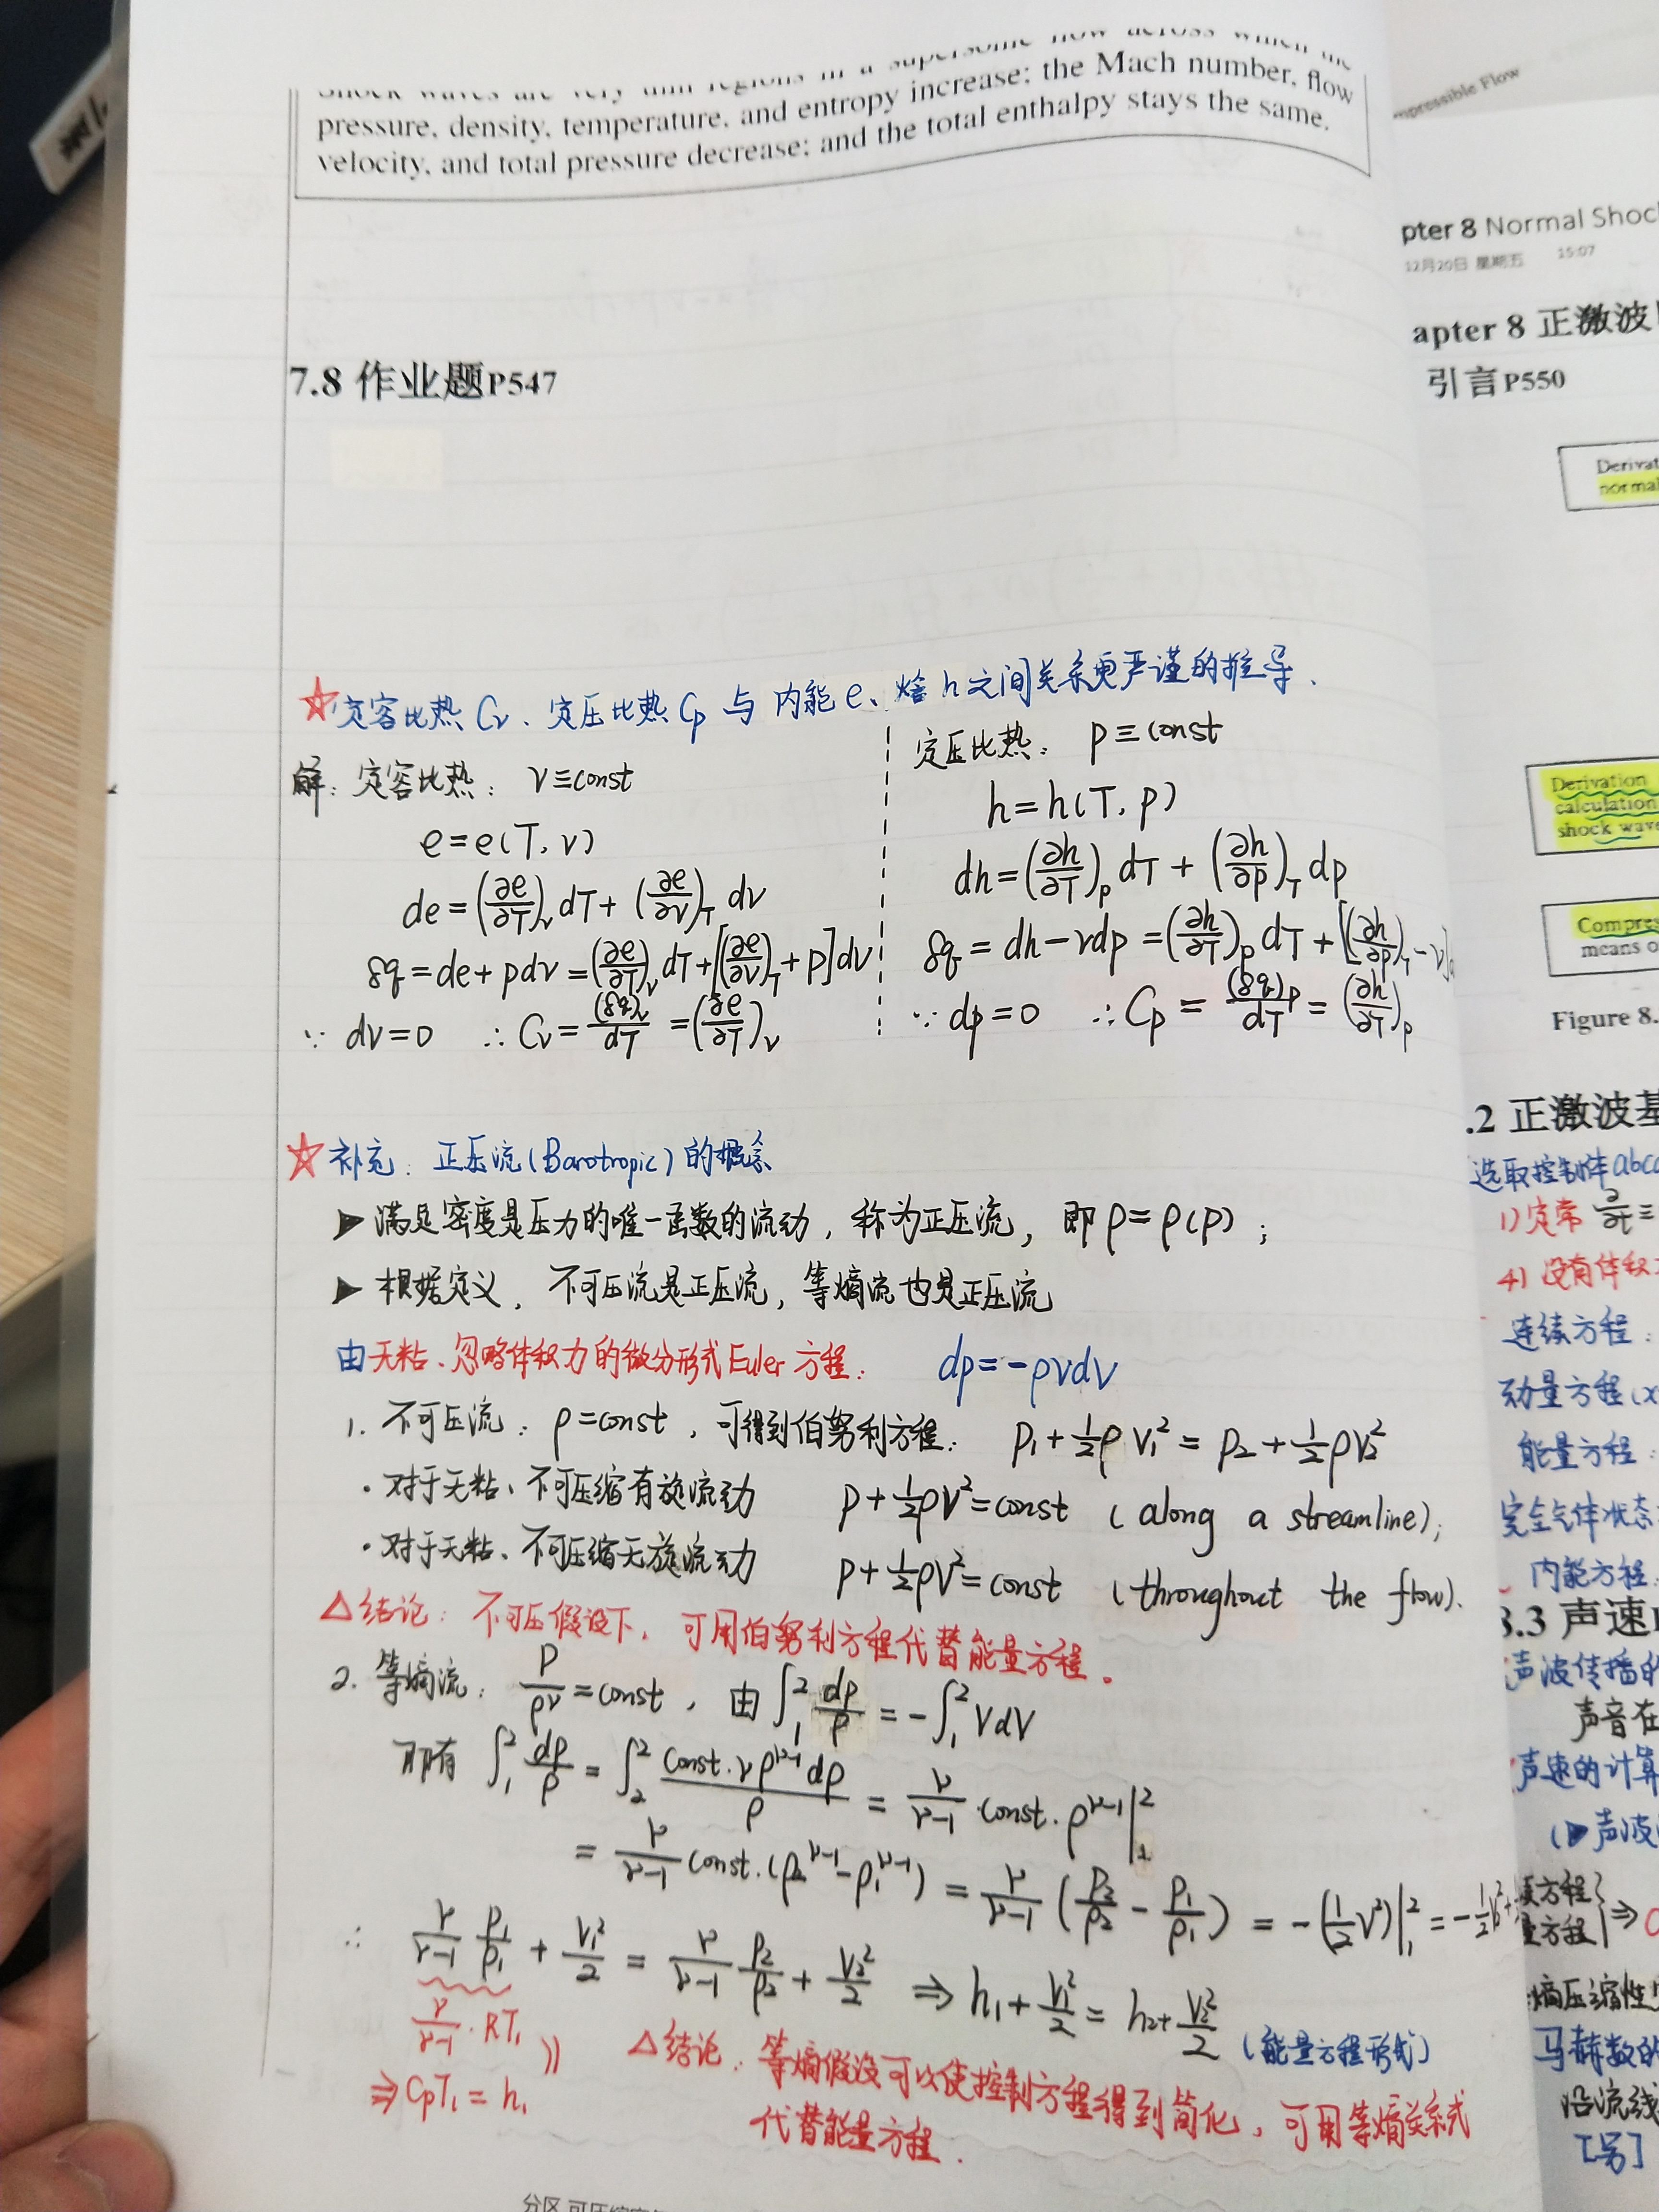 Shock waves are very thin regions in a supersonic flow across which the
pressure, density, temperature, and entropy increase; the Mach number, flow
velocity, and total pressure decrease; and the total enthalpy stays the same.
7.8 作业题P547
☆定容比热 Cv、定压比热 Cp 与 内能 e、焓 h 之间关系更严谨的推导.
解: 定容比热: v≡const
e=e(T, v)
de=(∂e/∂T)_v dT+(∂e/∂v)_T dv
δq=de+pdv=(∂e/∂T)_v dT+[(∂e/∂v)_T+p]dv
∵ dv=0 ∴ Cv=(δq)_v/dT=(∂e/∂T)_v
定压比热: p≡const
h=h(T, p)
dh=(∂h/∂T)_p dT+(∂h/∂p)_T dp
δq=dh-vdp=(∂h/∂T)_p dT+[(∂h/∂p)_T-v]
∵ dp=0 ∴ Cp=(δq)_p/dT=(∂h/∂T)_p
☆补充: 正压流(Barotropic)的概念
▶ 满足密度是压力的唯一函数的流动, 称为正压流, 即 ρ=ρ(p);
▶ 根据定义, 不可压流是正压流, 等熵流也是正压流
由无粘、忽略体积力的微分形式Euler方程: dp=-ρVdV
1. 不可压流: ρ=const, 可得到伯努利方程: p₁+½ρV₁²=p₂+½ρV₂²
·对于无粘、不可压缩有旋流动 p+½ρV²=const (along a streamline);
·对于无粘、不可压缩无旋流动 p+½ρV²=const (throughout the flow).
△结论: 不可压假设下, 可用伯努利方程代替能量方程。
2. 等熵流: p/ρ^γ=const, 由∫₁² dp/ρ=-∫₁² VdV
则有 ∫₁² dp/ρ=∫₂² const·γρ^(γ-1)dρ/ρ=γ/(γ-1)·const·ρ^(γ-1)|₁²
=γ/(γ-1) const·(ρ₂^(γ-1)-ρ₁^(γ-1))=γ/(γ-1)(p₂/ρ₂-p₁/ρ₁)=-(½V²)|₁²=-½V₂²+
∴ γ/(γ-1) p₁/ρ₁+V₁²/2=γ/(γ-1) p₂/ρ₂+V₂²/2 ⇒ h₁+V₁²/2=h₂+V₂²/2 (能量方程形式)
γ/(γ-1)·RT₁
⇒CpT₁=h₁
△结论: 等熵假设可以使控制方程得到简化, 可用等熵关系式
代替能量方程.
mpressible Flow
pter 8 Normal Shoc
12月20日 星期五 15:07
apter 8 正激波
引言P550
Derivat
normal
Derivation
calculation
shock wave
Compres
means o
Figure 8.
.2 正激波基
选取控制体abc
1)定常 ∂/∂t≡
4) 没有体积
连续方程:
动量方程(x
能量方程:
完全气体状态
内能方程:
3.3 声速
声波传播的
声音在
声速的计算
(▶声波
方程
方程 ⇒
熵压缩性
马赫数的
沿流线